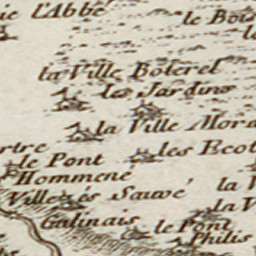 ie l'Abbé
le Bois
la Ville Boterel
les Jardins
la Ville Mora
rtre
les Ecot
le Pont
Hommené
la V
Ville és Sauvé
la V
Galinais
le Pont
Philis